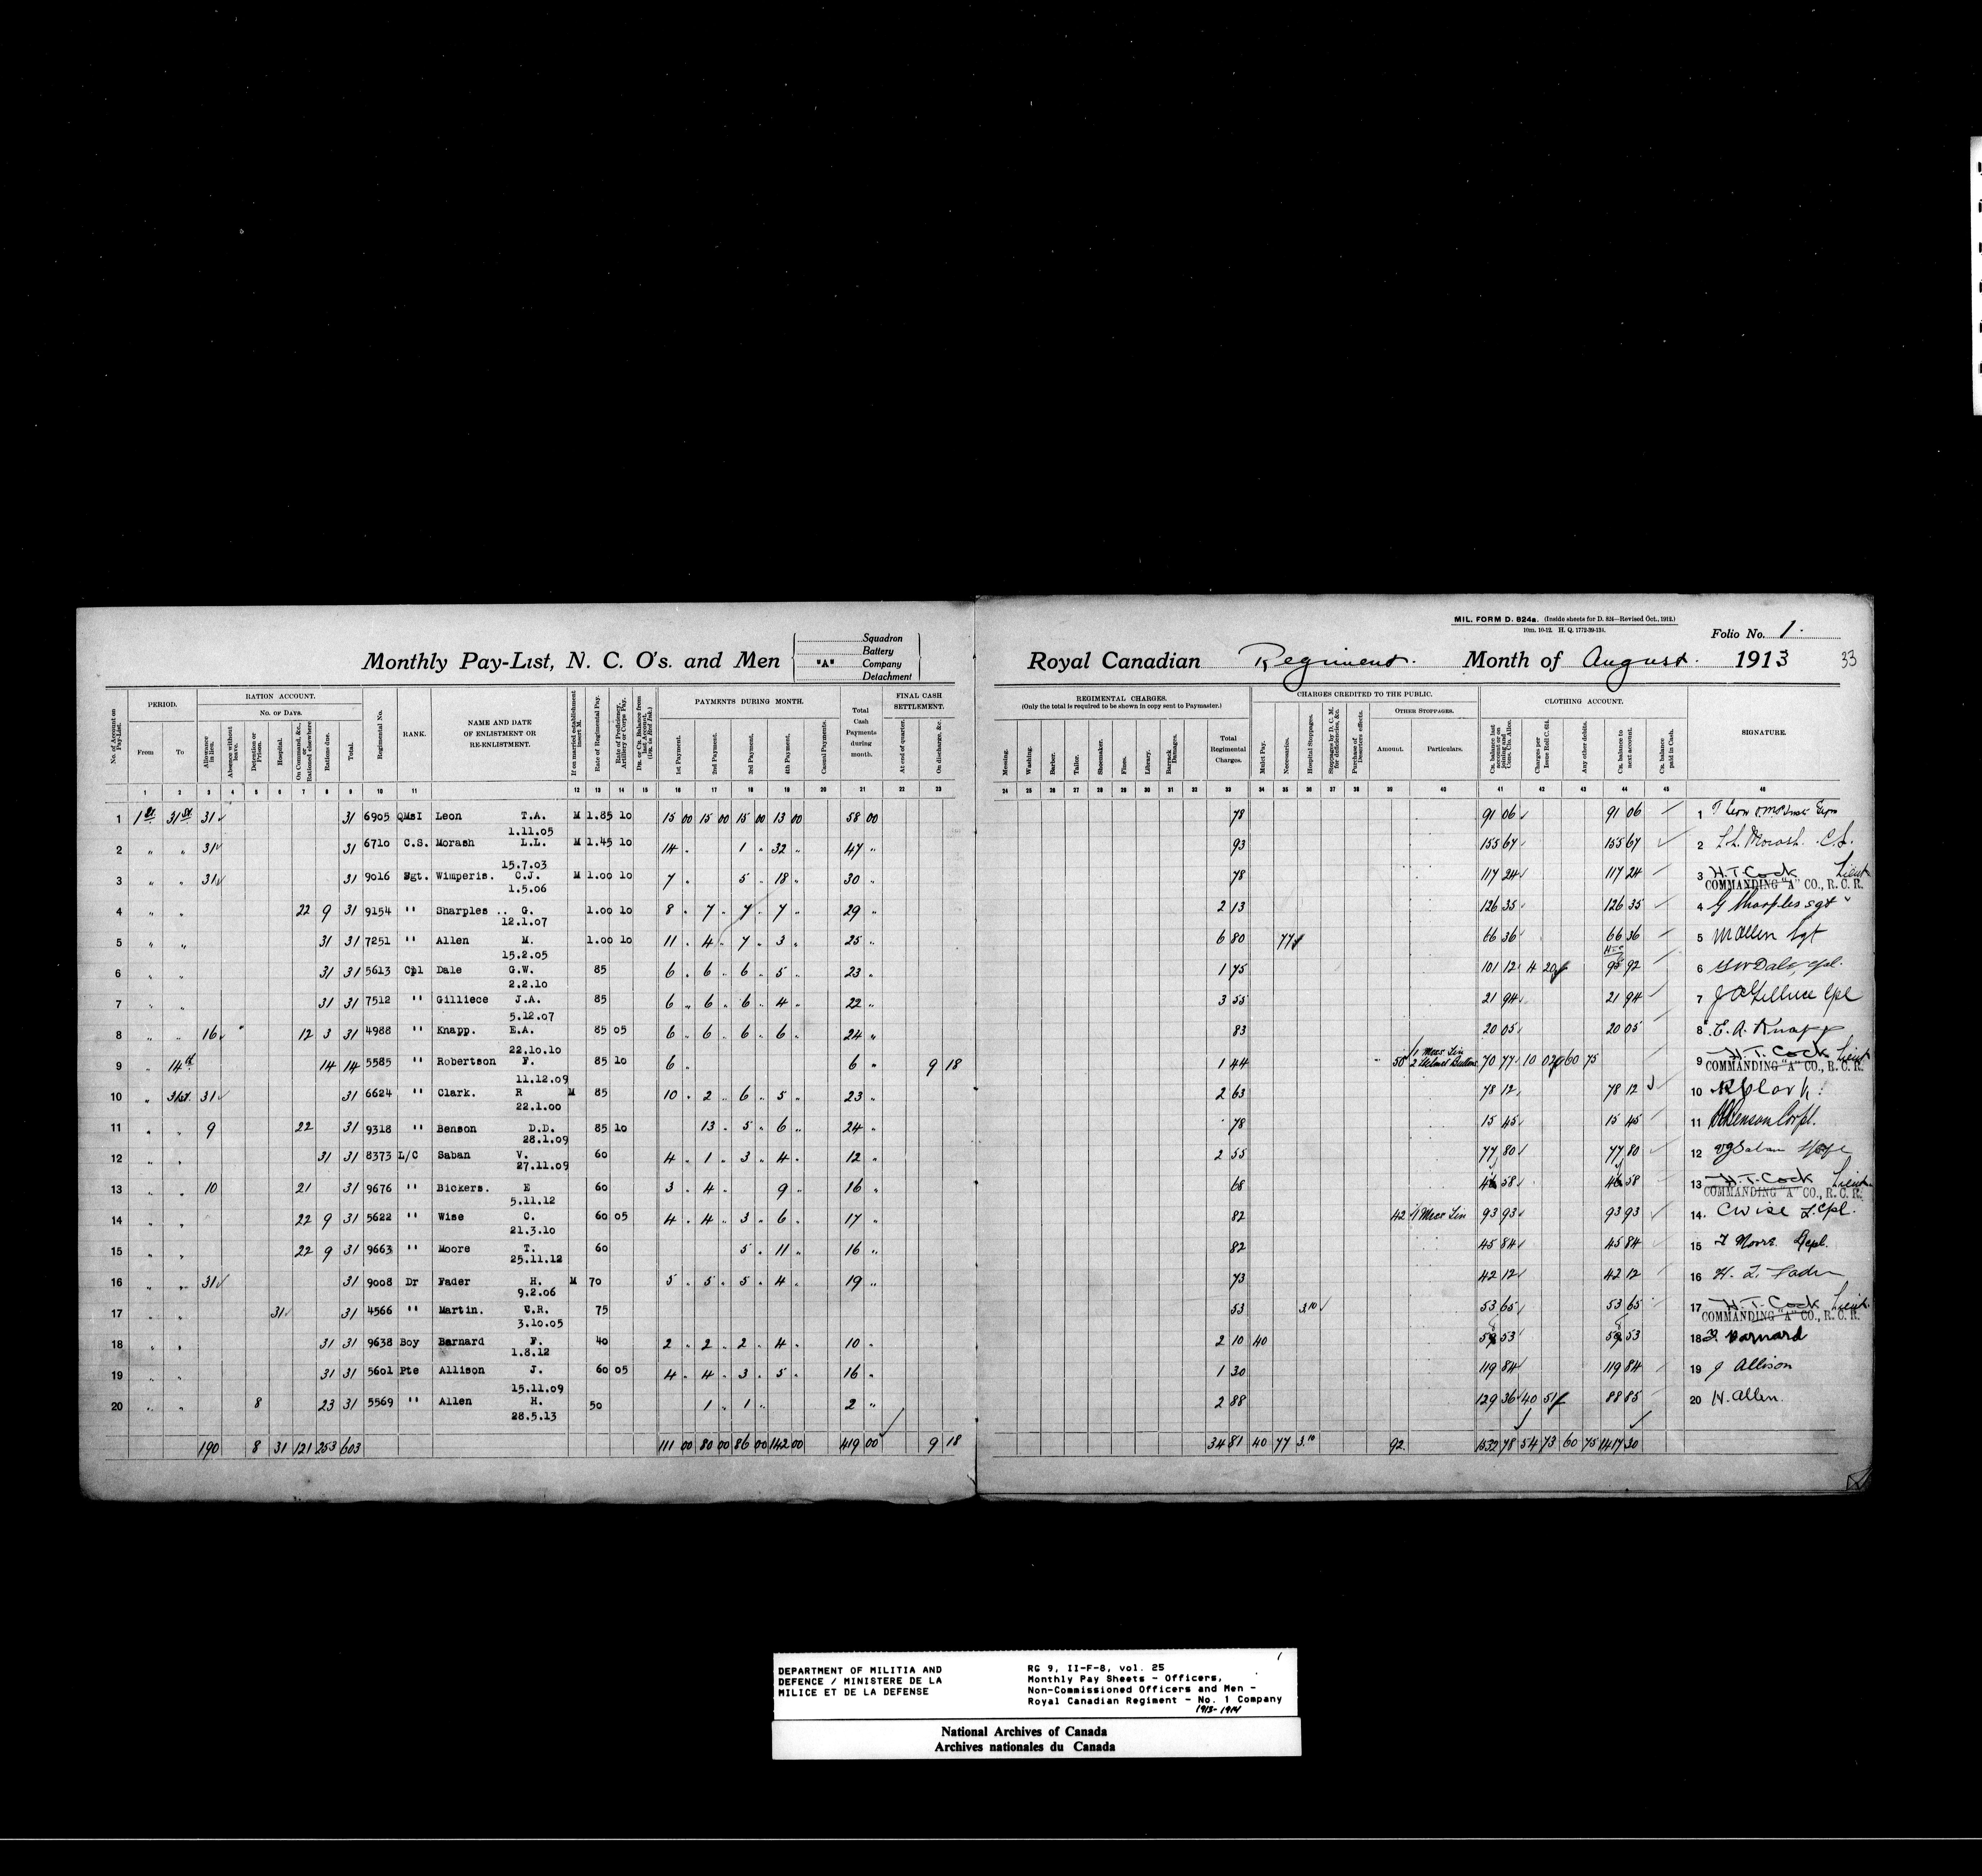 MIL. FORM D. 824a. (Inside sheets for D. 824—Revised Oct., 1912.)
10m. 10-12. H. Q. 1772-39-131.
Folio No. 1.
Monthly Pay-List, N. C. O's. and Men
Squadron
Battery
"A" Company
Detachment
Royal Canadian Regiment. Month of August. 1913
33
No. of Account on Pay-List.
PERIOD.
From
To
RATION ACCOUNT.
No. of Days.
Allowance in lieu.
Absence without leave.
Detention or Prison.
Hospital.
On Command, &c., or Rationed elsewhere
Rations due.
Total.
Regimental No.
RANK.
NAME AND DATE OF ENLISTMENT OR RE-ENLISTMENT.
If on married establishment insert M.
Rate of Regimental Pay.
Rate of Proficiency, Artillery or Corps Pay.
Dr. or Cr. Balance from last Account. (Dr. in Red Ink.)
PAYMENTS DURING MONTH.
1st Payment.
2nd Payment.
3rd Payment.
4th Payment.
Casual Payments.
Total Cash Payments during month.
FINAL CASH SETTLEMENT.
At end of quarter.
On discharge, &c.
REGIMENTAL CHARGES.
(Only the total is required to be shown in copy sent to Paymaster.)
Messing.
Washing.
Barber.
Tailor.
Shoemaker.
Fines.
Library.
Barrack Damages.
Total Regimental Charges.
CHARGES CREDITED TO THE PUBLIC.
Mulct Pay.
Necessaries.
Hospital Stoppages.
Stoppages by D. C. M. for deficiencies, &c.
Purchase of Deserters effects.
OTHER STOPPAGES.
Amount.
Particulars.
CLOTHING ACCOUNT.
Charges per Issue Roll C. 614.
Any other debits.
Cr. balance to next account.
Cr. balance paid in Cash.
SIGNATURE.
1 2 3 4 5 6 7 8 9 10 11 12 13 14 15 16 17 18 19 20 21 22 23
24 25 26 27 28 29 30 31 32 33 34 35 36 37 38 39 40 41 42 43 44 45 46
1 1st 31st 31 31 6905 QMSI Leon T.A. 1.11.05 M 1.85 10 15 00 15 00 15 00 13 00 58 00 78 91 06 91 06 1
2 " " 31 31 6710 C.S. Morash L.L. 15.7.03 M 1.45 10 14 . 1 . 32 " 47 " 93 155 67 155 67 2 L.L. Morash. C.S.
3 " " 31 31 9016 Sgt. Wimperis. C.J. 1.5.06 M 1.00 10 7 . 5 . 18 " 30 " 78 117 24 117 24 3 H.T. Cock Lieut
COMMANDING "A" CO., R. C. R.
4 " " 22 9 31 9154 " Sharples .. G. 12.1.07 1.00 10 8 . 7 . 7 . 7 " 29 " 2 13 126 35 126 35 4 G Sharples sgt
5 " " 31 31 7251 " Allen M. 15.2.05 1.00 10 11 . 4 . 7 . 3 " 25 " 6 80 77 66 36 66 36 5 M Allen Sgt
6 " " 31 31 5613 Cpl Dale G.W. 2.2.10 85 6 . 6 . 6 . 5 " 23 " 1 75 101 12 4 20 92 6 G W Dale, cpl.
7 " " 31 31 7512 " Gilliece J.A. 5.12.07 85 6 " 6 " 6 " 4 " 22 " 3 55 21 94 21 94 7 J A Gilliece Cpl
8 " " 16 12 3 31 4988 " Knapp. E.A. 22.10.10 85 05 6 . 6 . 6 . 6 . 24 " 83 20 05 20 05 8 E. A. Knapp
9 " 14th 14 14 5585 " Robertson F. 11.12.09 85 10 6 . 6 " 9 18 1 44 50 1 Mess Tin 2 Helmet Buttons 70 77 10 02 60 75 9 H. T. Cock Lieut
COMMANDING "A" CO., R. C. R.
10 " 31st. 31 31 6624 " Clark. R 22.1.00 M 85 10 . 2 . 6 . 5 . 23 " 2 63 78 12 78 12 10 R Clark.
11 " " 9 22 31 9318 " Benson D.D. 28.1.09 85 10 13 . 5 . 6 " 24 " 78 15 45 15 45 11 Benson Corpl.
12 " " 31 31 8373 L/C Saban V. 27.11.09 60 4 . 1 . 3 . 4 . 12 " 2 55 77 80 77 80 12 Saban
13 " " 10 21 31 9676 " Bickers. E 5.11.12 60 3 . 4 . 9 . 16 " 68 58 58 13 H.T. Cock Lieut
COMMANDING "A" CO., R. C. R.
14 " " 22 9 31 5622 " Wise C. 21.3.10 60 05 4 . 4 . 3 . 6 . 17 " 82 42 1 Mess Tin 93 93 93 93 14 C Wise L.Cpl.
15 " " 22 9 31 9663 " Moore T. 25.11.12 60 5 . 11 . 16 " 82 45 84 45 84 15 T Moore
16 " " 31 31 9008 Dr Fader H. 9.2.06 M 70 5 . 5 . 5 . 4 . 19 " 73 42 12 42 12 16 Fader
17 " " 31 31 4566 " Martin. C.R. 3.10.05 75 53 3.10 53 65 53 65 17 H. T. Cock Lieut.
COMMANDING "A" CO., R. C. R.
18 " " 31 31 9638 Boy Barnard F. 1.8.12 40 2 . 2 . 2 . 4 . 10 " 2 10 40 53 53 18 F Barnard
19 " " 31 31 5601 Pte Allison J. 15.11.09 60 05 4 . 4 . 3 . 5 . 16 " 1 30 119 84 119 84 19 J Allison
20 " " 8 23 31 5569 " Allen H. 28.5.13 50 1 . 1 " 2 " 2 88 129 36 40 51 88 85 20 H. Allen.
190 8 31 121 253 603 111 00 80 00 86 00 142 00 419 00 9 18 34 81 40 77 3.10 92 1532 78 54 73 60 75 1417 30
DEPARTMENT OF MILITIA AND
DEFENCE / MINISTERE DE LA
MILICE ET DE LA DEFENSE
RG 9, II-F-8, vol. 25
Monthly Pay Sheets - Officers,
Non-Commissioned Officers and Men -
Royal Canadian Regiment - No. 1 Company
1913-1914
National Archives of Canada
Archives nationales du Canada